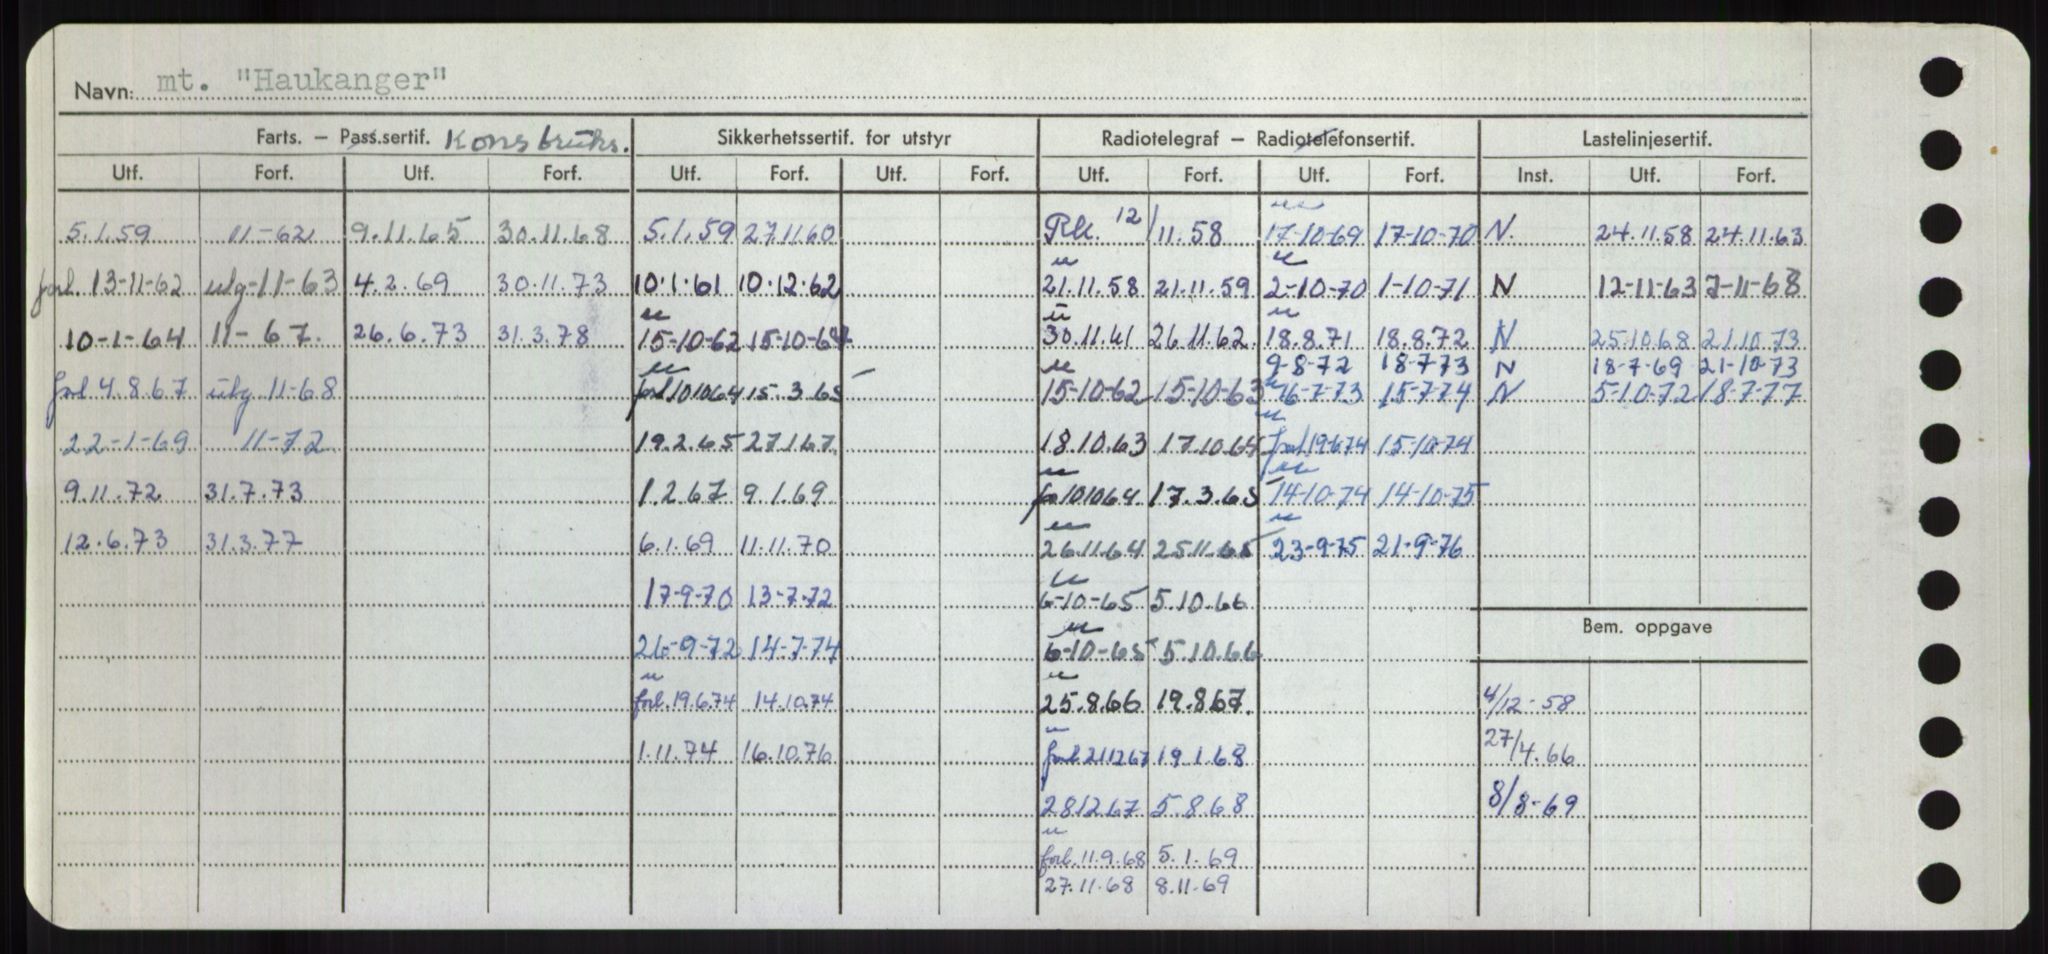 Navn: mt. "Haukanger"
Farts. – Pass.sertif. Konstruks. Sikkerhetssertif. for utstyr Radiotelegraf – Radiotelefonsertif. Lastelinjesertif.
Utf. Forf. Utf. Forf. Utf. Forf. Utf. Forf. Utf. Forf. Utf. Forf. Inst. Utf. Forf.
5.1.59 11-62 9.11.65 30.11.68 5.1.59 27.11.60 12/11.58 17-10-69 17-10-70 N. 24.11.58 24.11.63
forl. 13-11-62 utg-11-63 4.2.69 30.11.73 10.1.61 10.12.62 21.11.58 21.11.59 2-10-70 1-10-71 N 12-11-63 7-11-68
10-1-64 11-67. 26.6.73 31.3.78 15-10-62 15-10-64 30.11.61 26.11.62. 18.8.71 18.8.72 N 25.10.68 21.10.73
9-8-72 18-7-73 N 18-7-69 21-10-73
forl 4.8.67 utg 11-68 forl 10.10.64 15.3.65 15-10-62 15-10-63 16-7-73 15-7-74 N 5-10-72 18-7-77
22-1-69 11-72 19.2.65 27.1.67. 18.10.63 17.10.64 forl 19-6-74 15-10-74
9.11.72 31.7.73 1.2.67 9.1.69 10.10.64 17.3.65 14-10-74 14-10-75
12.6.73 31.3.77 6.1.69 11.11.70 26.11.64 25.11.65 23-9-75 21-9-76
17-9-70 13-7-72 6-10-65 5.10.66
Bem. oppgave
26-9-72 14-7-74 6-10-65 5.10.66
forl. 19.6.74 14.10.74 25.8.66 19.8.67. 4/12-58
1.11.74 16.10.76 forl. 21.12.67 19.1.68 27/4.66
28.12.67 5.8.68 8/8-69
forl. 11.9.68 5.1.69
27.11.68 8.11.69